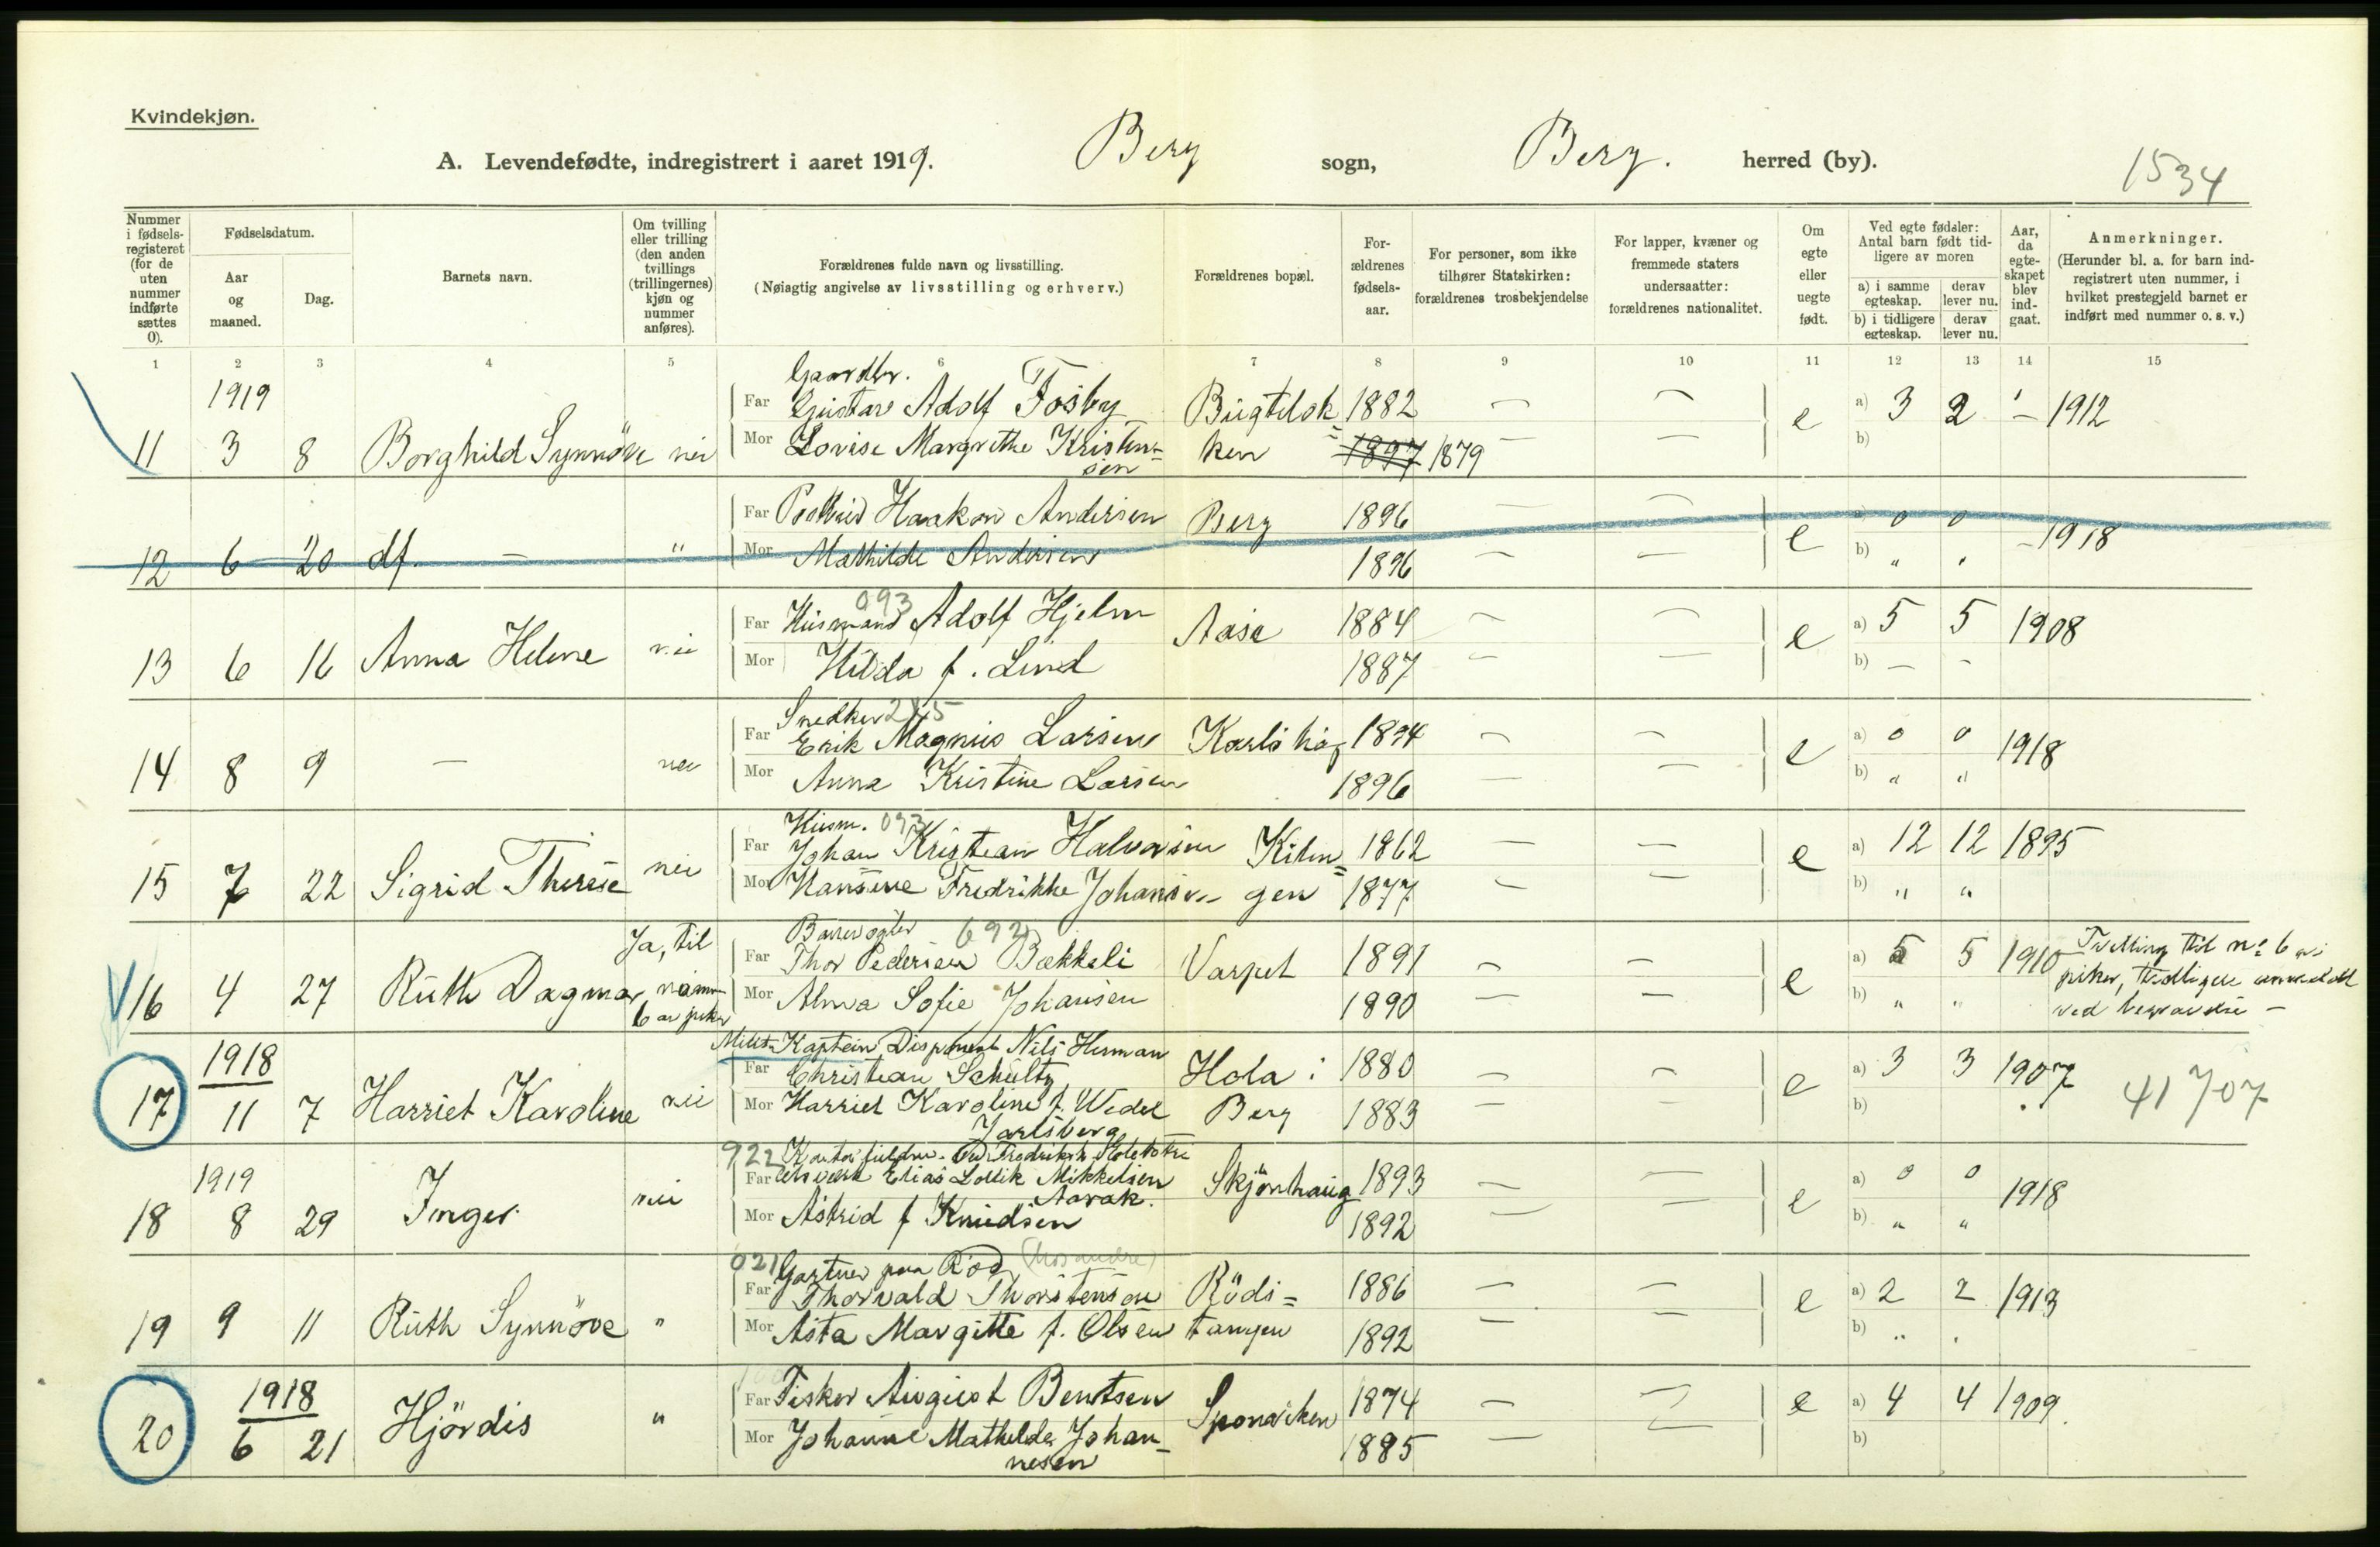 Kvindekjøn.
A. Levendefødte, indregistrert i aaret 1919. Berg sogn, Berg. herred (by).
1534
Nummer i fødsels-registeret (for de uten nummer indførte sættes 0).
Fødselsdatum.
Aar og maaned.
Dag.
Barnets navn.
Om tvilling eller trilling (den anden tvillings (trillingernes) kjøn og nummer anføres).
Forældrenes fulde navn og livsstilling.
(Nøiagtig angivelse av livsstilling og erhverv.)
Forældrenes bopæl.
For-ældrenes fødsels-aar.
For personer, som ikke tilhører Statskirken: forældrenes trosbekjendelse
For lapper, kvæner og fremmede staters undersaatter: forældrenes nationalitet.
Om egte eller uegte født.
Ved egte fødsler: Antal barn født tid-ligere av moren
a) i samme egteskap.
derav lever nu.
b) i tidligere egteskap.
derav lever nu.
Aar, da egte-skapet blev ind-gaat.
Anmerkninger.
(Herunder bl. a. for barn ind-registrert uten nummer, i hvilket prestegjeld barnet er indført med nummer o. s. v.)
1 2 3 4 5 6 7 8 9 10 11 12 13 14 15
1919 Gaardbr.
Far Gustav Adolf Fosby Bugtelok 1882 — — a) 3 2 1912
11 3 8 Borghild Synnöve nei Mor Lovise Margrethe Kristen= ken 1897 1879 — — e b)
sen
Far Haakon Andersen Berg 1896 — — a) 0 0
12 6 20 df. — " Mor Mathilde Andersen 1896 — — e b) " " 1918
093
Far Husmand Adolf Hjelm Aase 1884 — — a) 5 5 1908
13 6 16 Anna Helene nei Mor Hilda f. Lind 1887 — — e b) — —
Snedker 285
Far Erik Magnus Larsen 1894 — — a) 0 0 1918
14 8 9 — nei Mor Anna Kristine Larsen 1896 — — e b) " "
Husm. 093
Far Johan Kristian Halvorsen Kiln= 1862 — — a) 12 12 1895
15 7 22 Sigrid Therese nei Mor Hansine Fredrikke Johansen gen 1877 — — e b) " "
Ja, til 692
Far Thor Pedersen Bækkeli Varpet 1891 — — a) 5 5 1910 Tvilling til nº 6
16 4 27 Ruth Dagmar Mor Alma Sofie Johansen 1890 — — e b) " "
1918 Kaptein, Disponent Nils Herman
Far Christian Schultz Hola i 1880 — — a) 3 3 1907
17 11 7 Harriet Karoline nei Mor Harriet Karoline f. Wedel Berg 1883 — — e b) 41707
Jarlsberg
922
1919 Far Elias Mikkelsen Skjönhaug 1893 — — a) 0 0 1918
Aarak.
18 8 29 Inger nei Mor Astrid f Knudsen 1892 — — e b) " "
021 Gartner paa Röd (hos andre)
Far Thorvald Thorstensen Röds= 1886 — — a) 2 2 1913
19 9 11 Ruth Synnöve " Mor Asta Margitte f. Olsen tangen 1892 — — e b) " "
1918 Far Fisker August Berntsen Sponviken 1874 — — e a) 4 4 1909.
20 6 21 Hjördis " Mor Johanne Mathilde Johan= 1885 — — b)
nesen